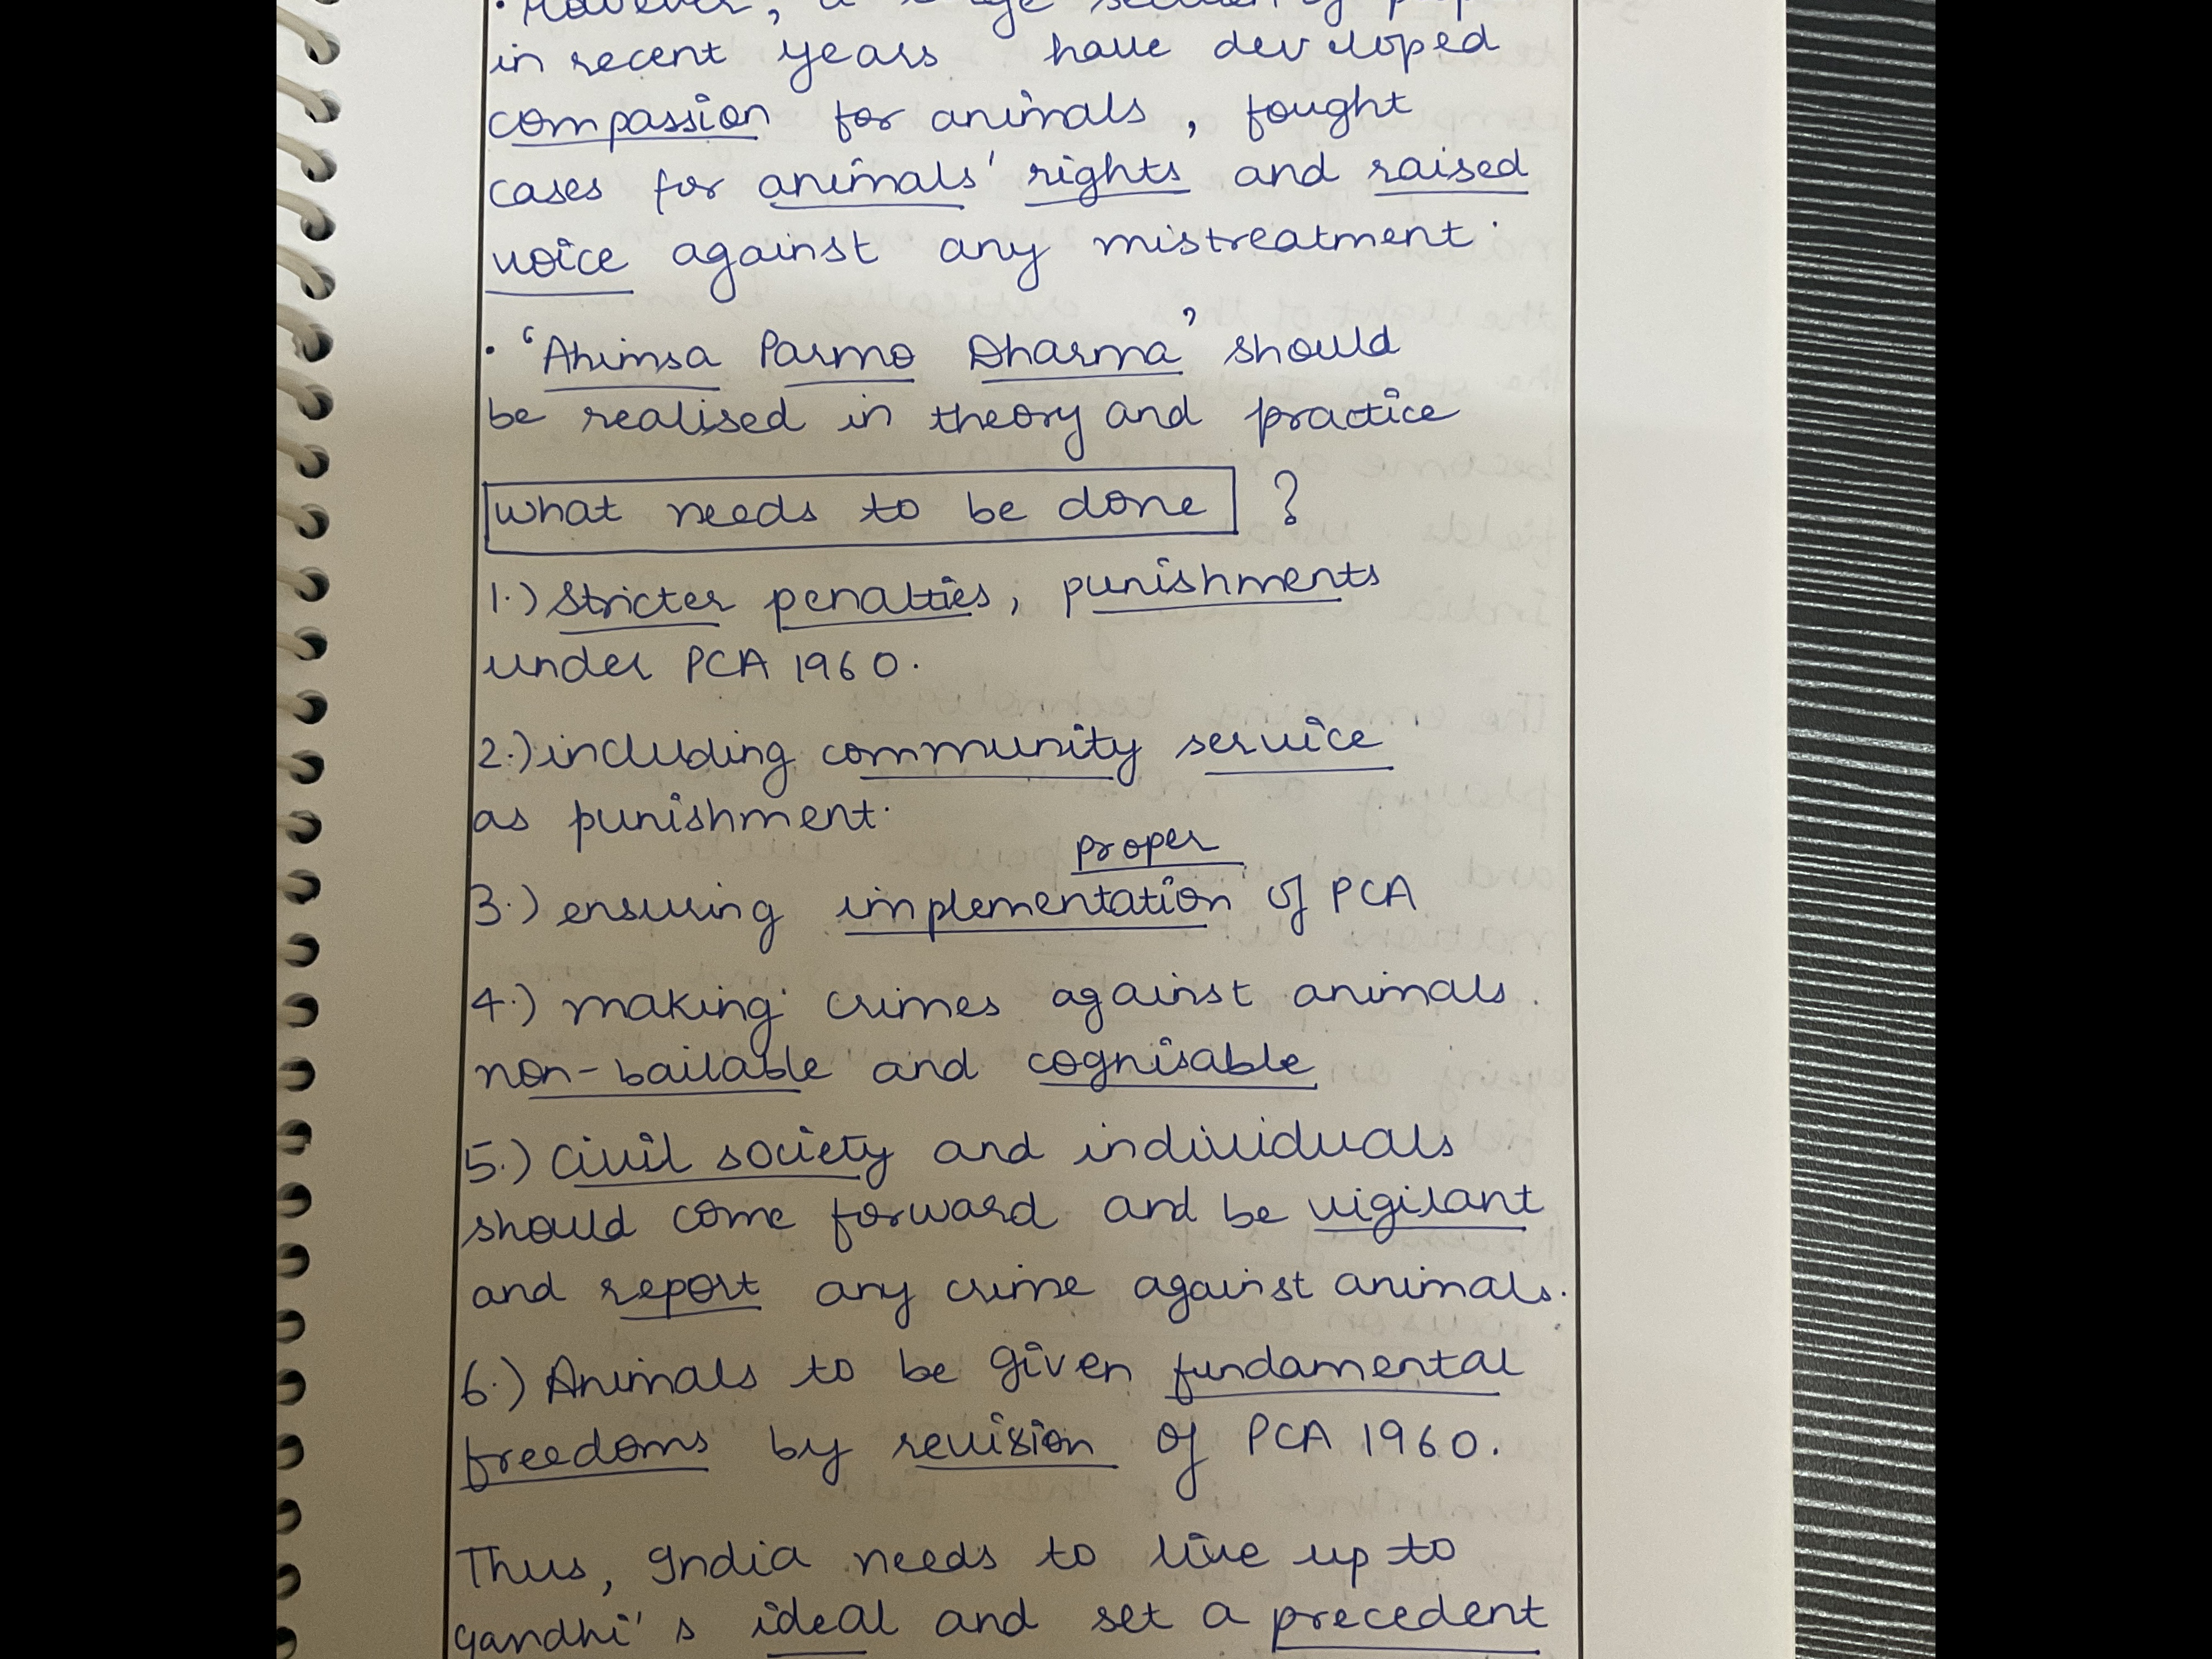 • However, a large section of
in recent years have developed
compassion for animals, fought
cases for animals' rights and raised
voice against any mistreatment.
• 'Ahimsa Parmo Dharma' should
be realised in theory and practice
what needs to be done ?
1.) Stricter penalties, punishments
under PCA 1960.
2.) including community service
as punishment.
proper
3.) ensuring implementation of PCA
4.) making crimes against animals
non-bailable and cognisable
5.) Civil society and individuals
should come forward and be vigilant
and report any crime against animals.
6.) Animals to be given fundamental
freedoms by revision of PCA 1960.
Thus, India needs to live up to
gandhi's ideal and set a precedent